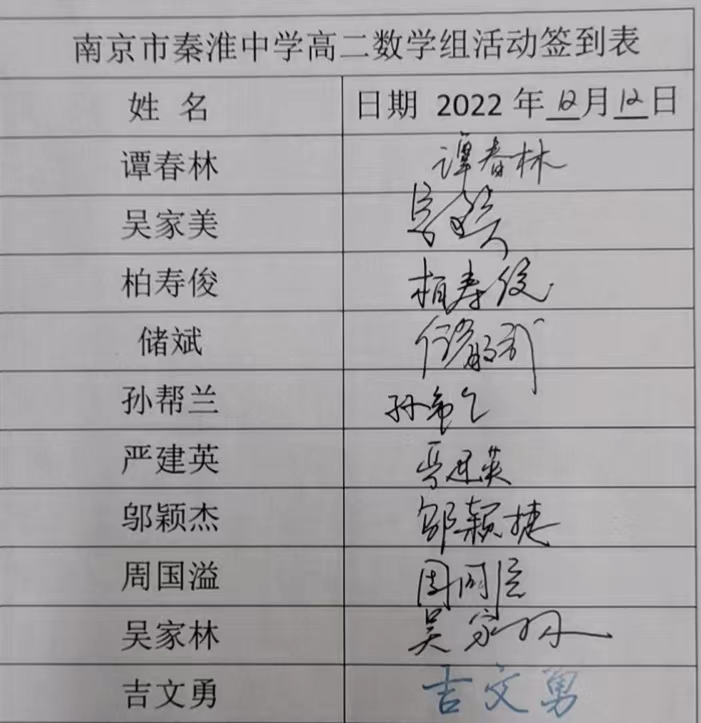 南京市秦淮中学高二数学组活动签到表
姓 名 日期 2022 年 12 月 12 日
谭春林 谭春林
吴家美
柏寿俊 柏寿俊
储斌
孙帮兰
严建英 严建英
邬颖杰 邬颖捷
周国溢
吴家林 吴家林
吉文勇 吉文勇